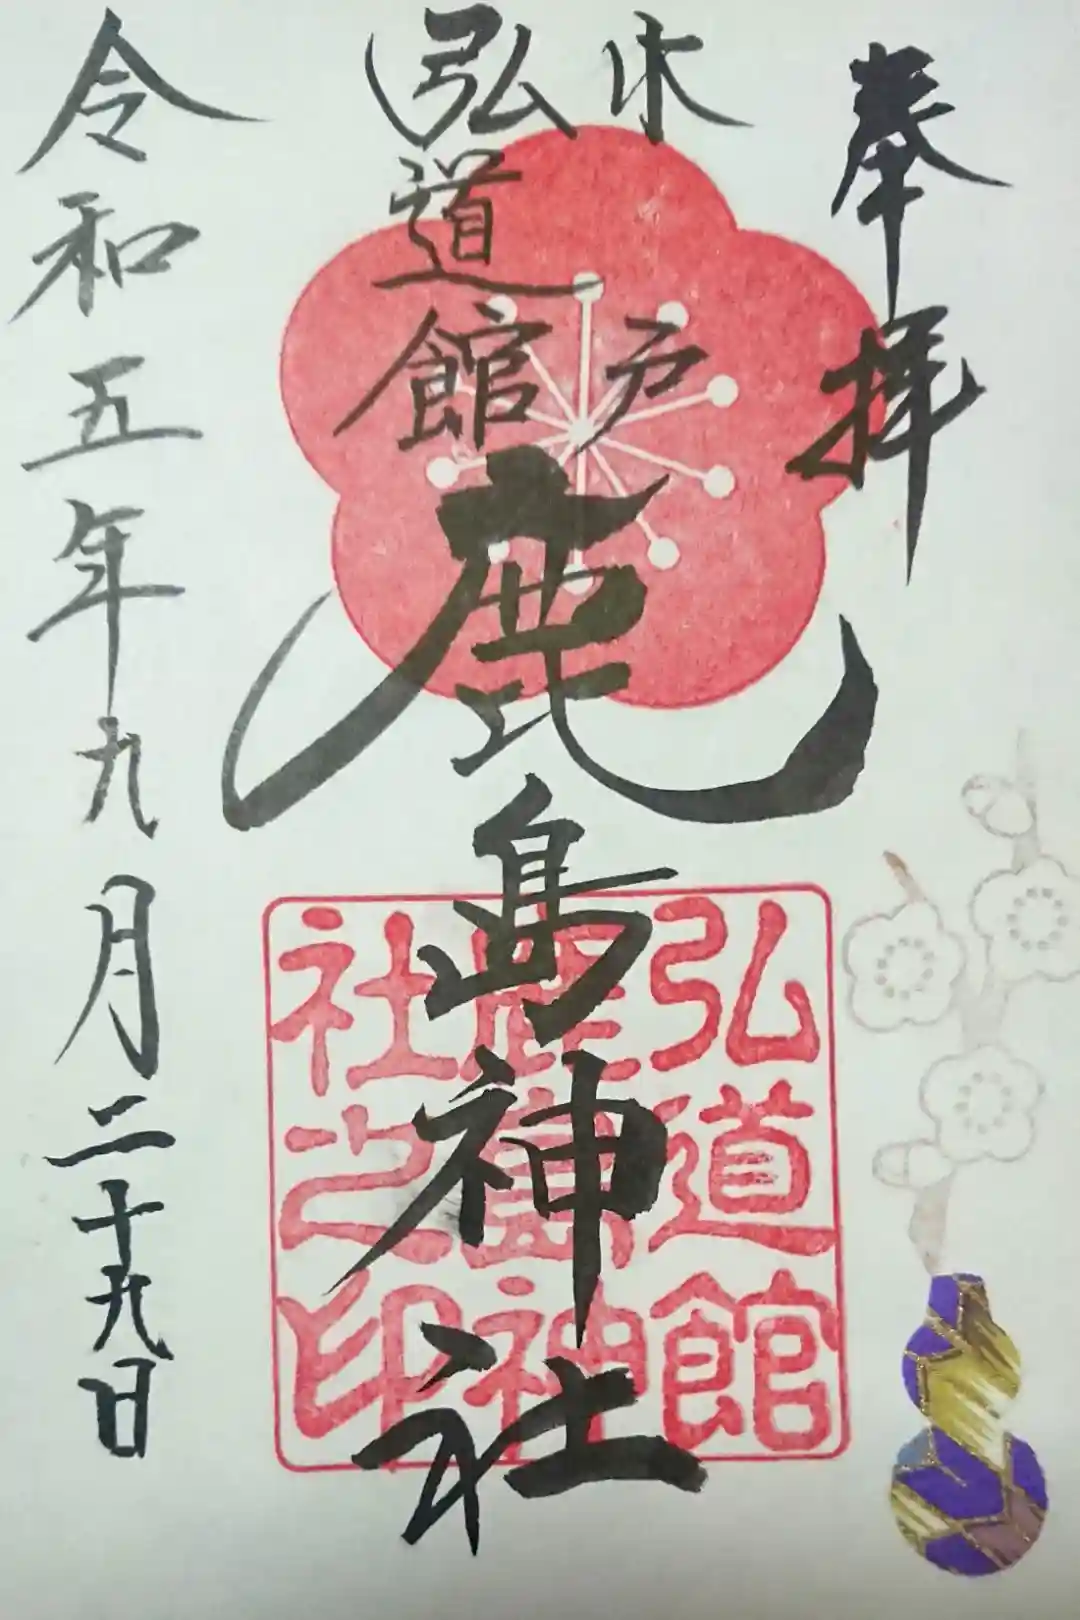 奉拝
水戸
弘道館
鹿島神社
弘道館
鹿島神
社之印
令和五年九月二十九日